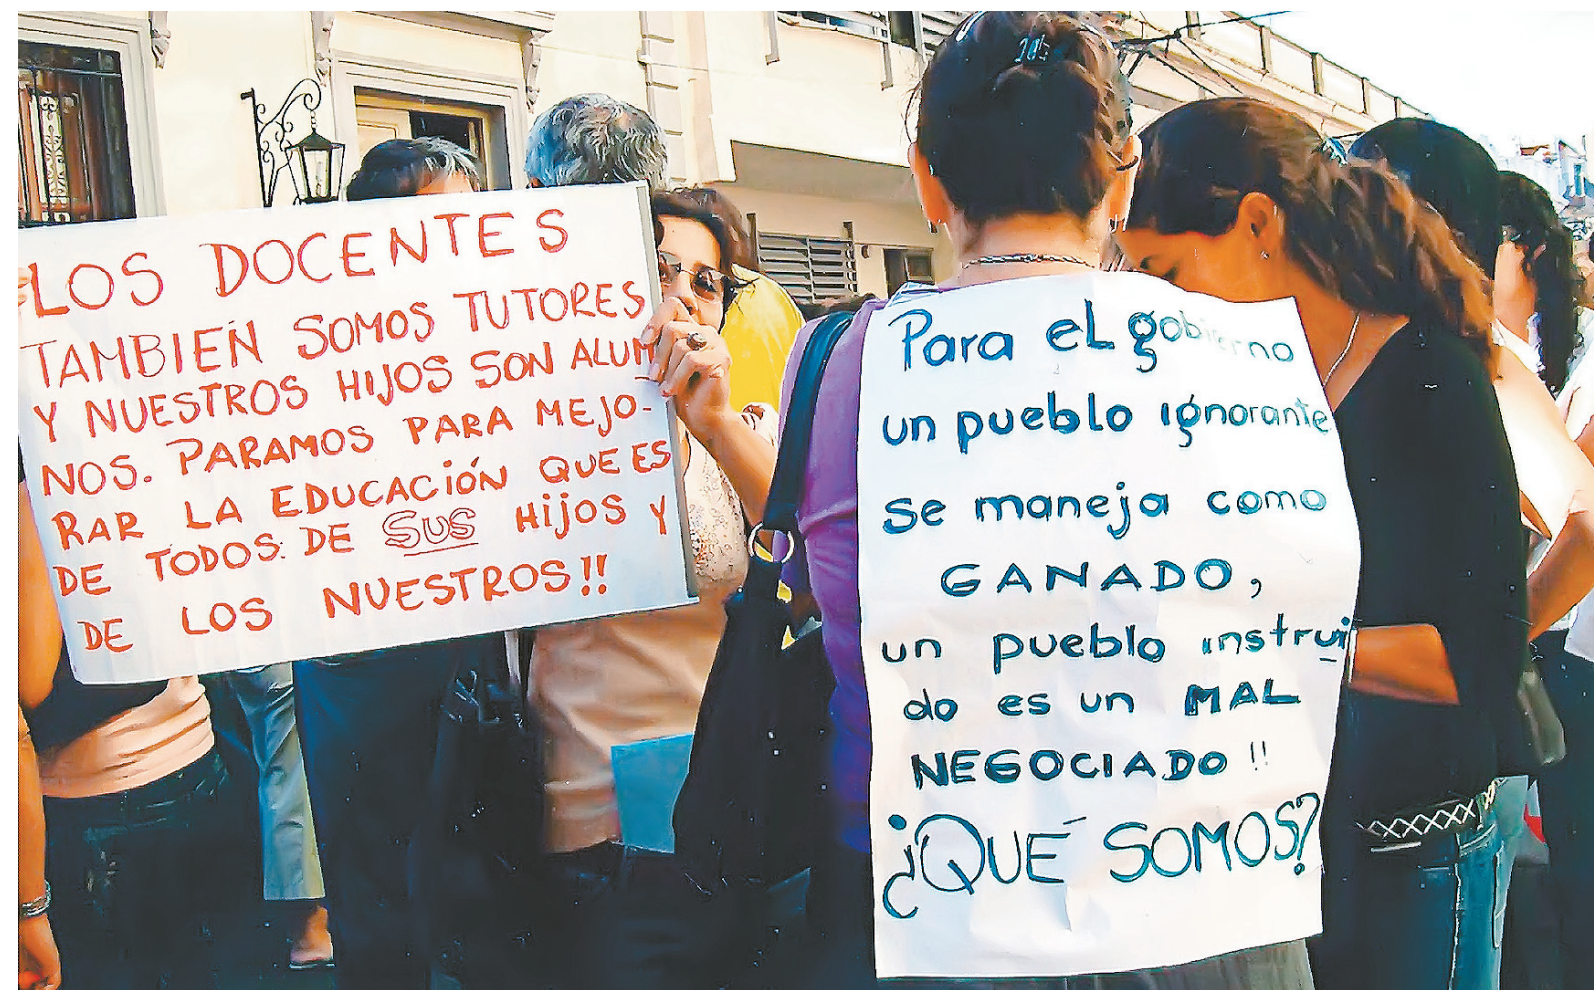 LOS DOCENTES
TAMBIEN SOMOS TUTORES
Y NUESTROS HIJOS SON ALUM
NOS. PARAMOS PARA MEJO-
RAR LA EDUCACIÓN QUE ES
DE TODOS: DE SUS HIJOS Y
DE LOS NUESTROS!!
Para eL gobierno
un pueblo ignorante
se maneja como
GANADO,
un pueblo instrui
do es un MAL
NEGOCIADO!!
¿QUÉ SOMOS?